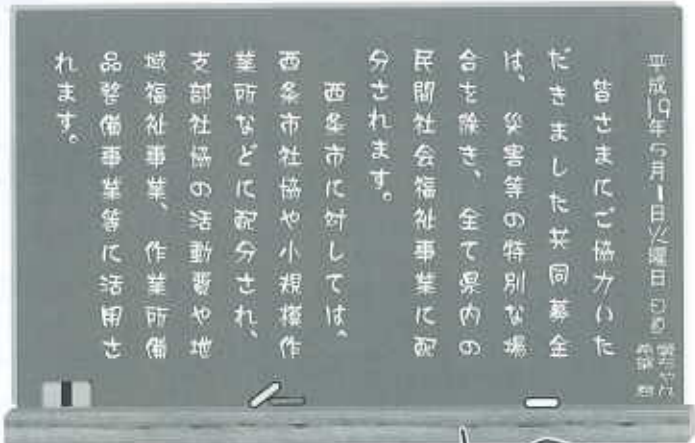 平成19年5月1日火曜日 日直
皆さまにご協力いた
だきました共同募金
は、災害等の特別な場
合を除き、全て県内の
民間社会福祉事業に配
分されます。
西条市に対しては、
西条市社協や小規模作
業所などに配分され、
支部社協の活動費や地
域福祉事業、作業所備
品整備事業等に活用さ
れます。